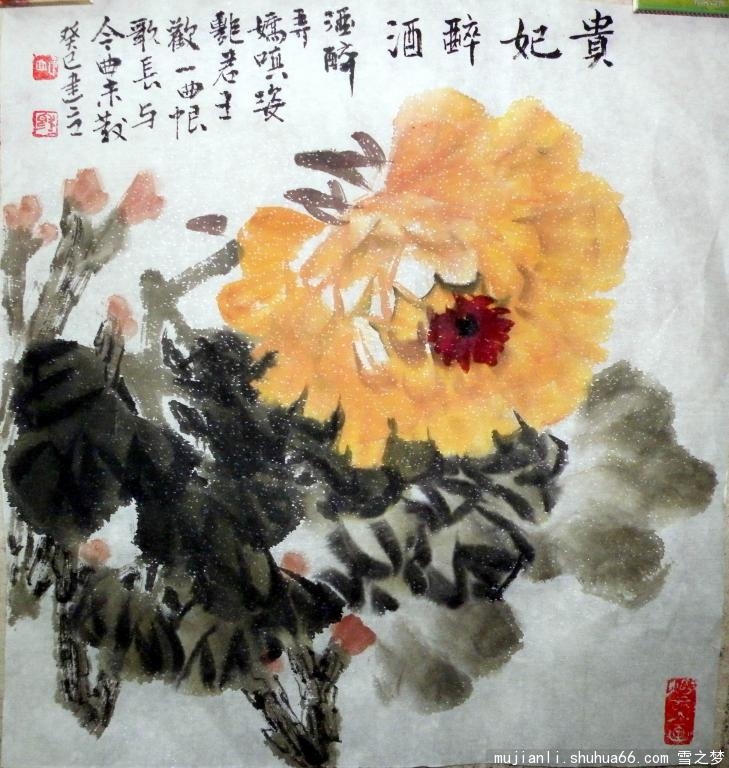 貴妃醉酒
酒醉
弄
嬌嗔姿
君王
歡一曲恨
歌長与
曲未
癸巳建
mujianli.shuhua66.com 雪之梦